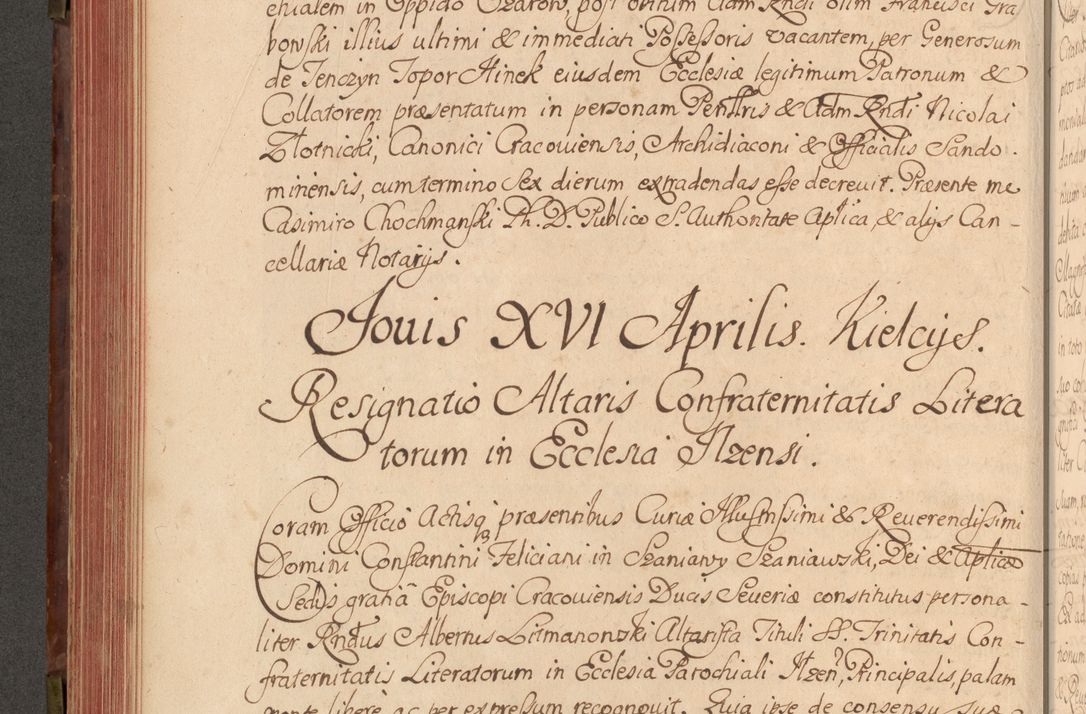 chialem in Oppido Ozarow, post obitum Adm Rndi olim Francisci Gra
bowski illius ultimi & immediati Possessoris vacantem, per Generosum
de Tenczyn Topor Hinek eiusdem Ecclesiæ legitimum Patronum &
Collatorem præsentatum in personam Perillris & Adm Rndi Nicolai
Złotnicki, Canonici Cracouiensis, Archidiaconi & Officialis Sando-
miriensis, cum termino Sex dierum extradendas esse decreuit. Præsente me
Casimiro Chochmanski Ph. D. Publico S. Authoritate Aplica, & alijs Can-
cellariæ Notarijs.
Jouis XVI Aprilis. Kielcijs.
Resignatio Altaris Confraternitatis Litera
torum in Ecclesia Ilzensi.
Coram Officio Actisq præsentibus Curiæ Illustrissimi & Reuerendissimi
Domini Constantini Feliciani in Szaniawy Szaniawski, Dei & Aplicæ
Sedis gratiâ Episcopi Cracouiensis Ducis Seueriæ constitutus persona-
liter Rndus Albertus Litmanowski Altarista Tituli SS. Trinitatis Con-
fraternitatis Literatorum in Ecclesia Parochiali Ilzen, Principalis, palam
libere ac per expressum recognouit. Quia ipse de consensu suæ